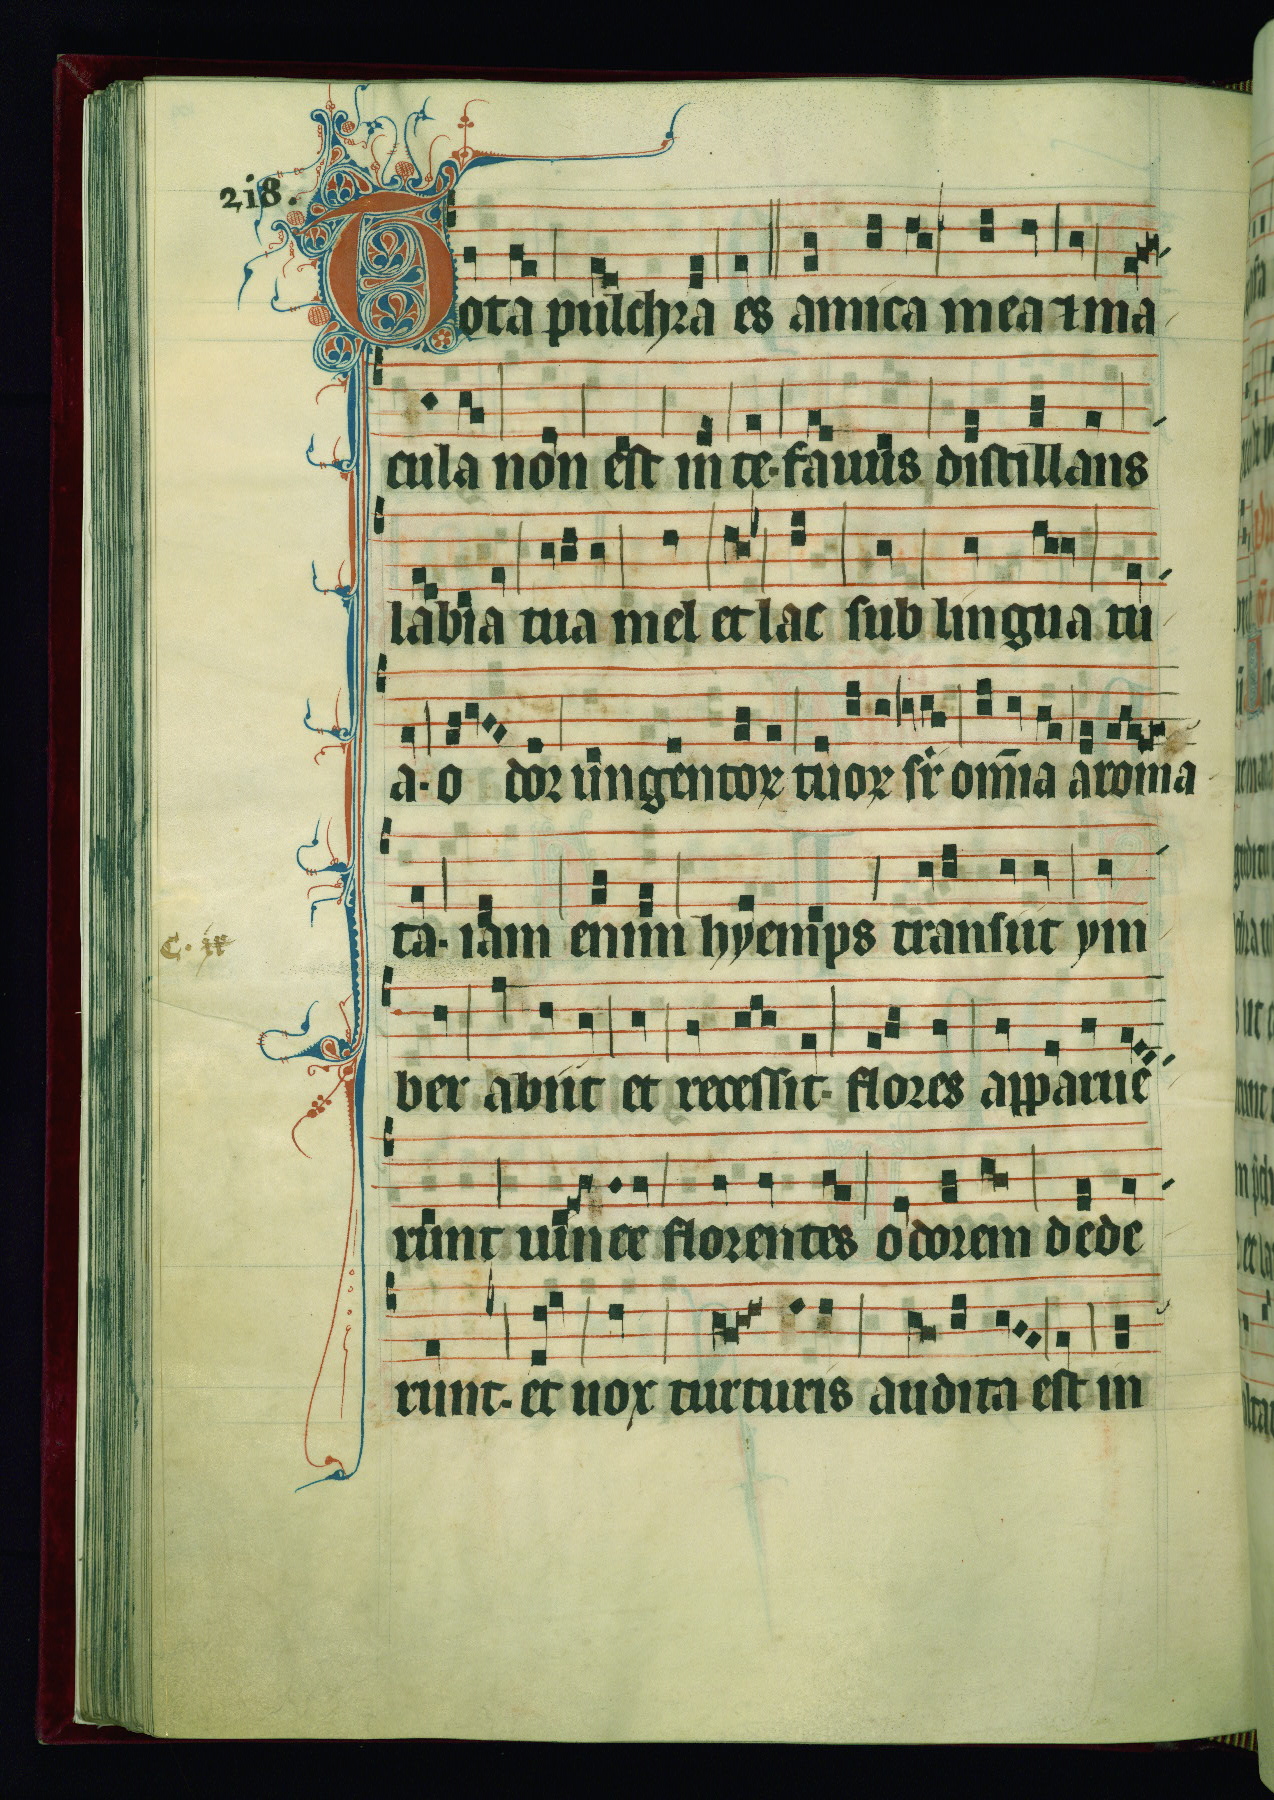 218.
Tota pulchra es amica mea ⁊ ma
cula non est in te· fauus distillans
labia tua mel et lac sub lingua tu
a· odor ungentoꝝ tuoꝝ sr̄ om̄ia aroma
ta· iam enim hyemps transiit ym
ber abiit et recessit· flores apparue
runt uinee florentes odorem dede
runt· et uox turturis audita est in